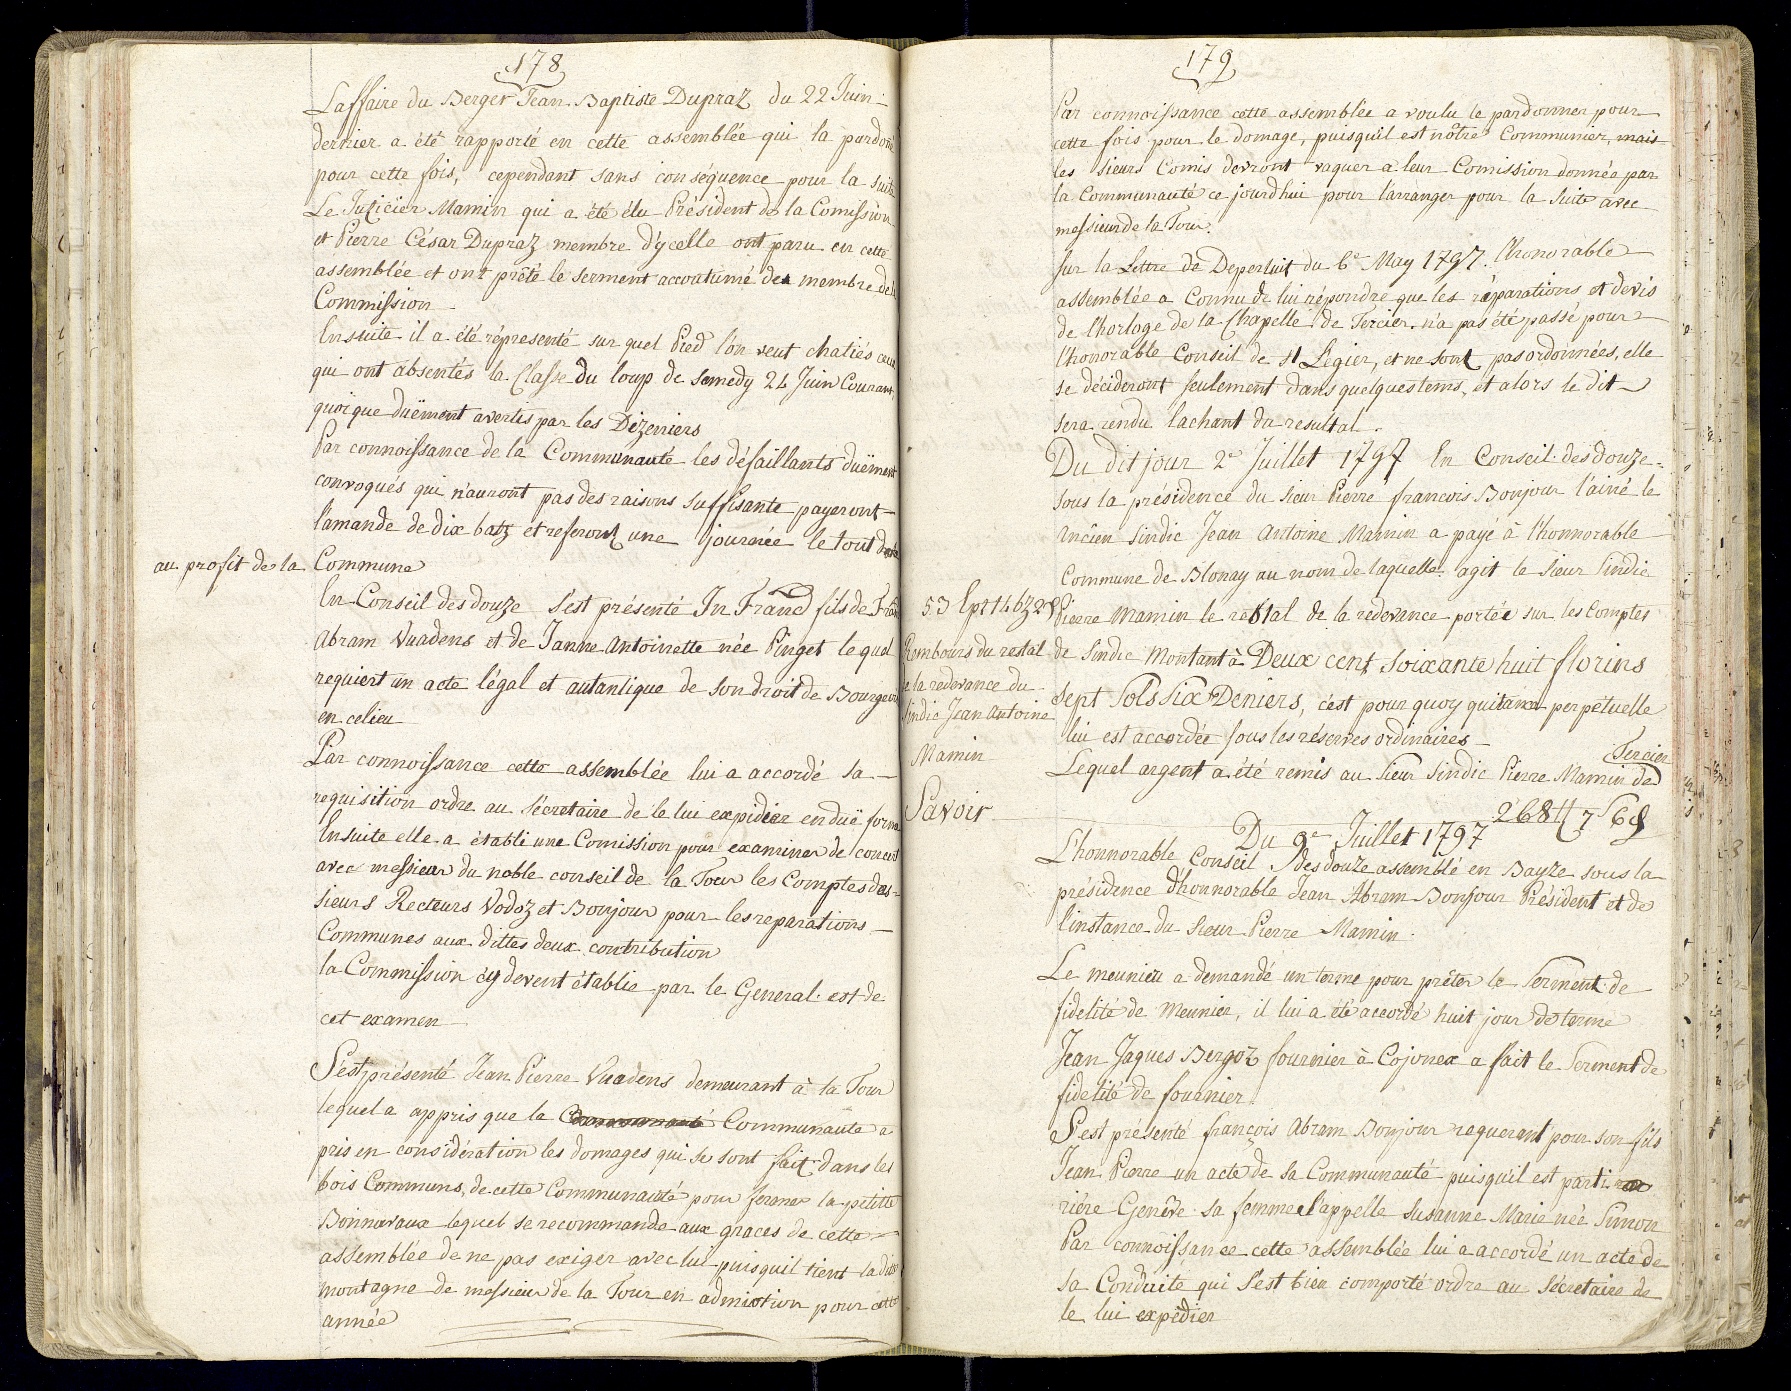 178
Laffaire du Berger Jean Baptiste Dupraz du 22 Juin
dernier a été rapporté en cette assemblée qui la pardoné
pour cette fois, cependant sans conséquence pour la suite
Le Juscicier Mamin qui a été élu Président de la Comission
et Pierre César Dupraz membre d'ycelle ont paru en cette
assemblée et ont prêté le serment accoutumé des membre de la
Commission
Ensuite il a été répresenté sur quel Pied l'on veut chatiés ceux
qui ont absentés la Classe du loup de samedy 24 Juin Courant
quoique duëment avertis par les Dizeniers
Par connoissance de la Communauté les défaillants duëment
convoqués qui n'auront pas des raisons suffisante payeront
l'amande de dix batz et referont une journée le tout
au profit de la Commune
En Conseil des douze s'est présenté Jn Franç fils de Franç
Abram Vuadens et de Janne Antoinette née Pinget le quel
requiert un acte légal et autantique de son droit de Bourgeoisie
en celieu
Par connoissance cette assemblée lui a accordé sa
requisition ordre au sécretaire de le lui expidier en duë forme
Ensuite elle a établi une Comission pour examiner de concert
avec messieur du noble conseil de la Tour les Comptes des
sieurs Recteurs Vodoz et Bonjour pour les reparations
Communes aux dittes deux contribution
la Commission cy devent établie par le General est de
cet examen
S'est présenté Jean Pierre Vuadens demeurant à la Tour
lequel a appris que la Communauté a
pris en considération les domages qui se sont fait dans les
bois Communs, de cette Communauté pour fermer la petitte
Bonnavaux lequel se recommande aux graces de cette
assemblée de ne pas exiger avec lui puisquil tient la ditte
montagne de messieur de la Tour en admotion pour cette
année
179
Par connoissance cette assemblée a voulu le pardonner pour
cette fois pour le domage, puisquil est nôtre Communier, mais
les sieurs Comis devront vaguer a leur Comission donnée par
la Communauté ce jourdhui pour l'arranger pour la suite avec
messieurs de la Tour.
Sur la Lettre de Deperluit du 6e May 1797. l'honorable
assemblée a Connu de lui répondre que les réparations et devis
de l'horloge de la Chapelle de Tercier n'a pas été passé pour
l'honorable Conseil de st Légier, et ne sont pas ordonnées, elle
se décideront seulement dans quelques tems, et alors le dit
sera rendu sachant du resultat.
Du dit jour 2e Juillet 1797 En Conseil des douze
sous la présidence du sieur Pierre francois Bonjour l'ainé le
Ancien sindic Jean Antoine Mamin a payé à l'honnorable
Commune de Blonay au nom de laquelle agit le sieur Sindic
Pierre Mamin le restal de la redevance portée sur les Comptes
de Sindic Montant à Deux cent soixante huit florins
sept Sols Six Deniers, c'est pourquoy quitance perpetuelle
lui est accordée sous les réserves ordinaires
53 Ept 14 bz 2 8
Rembours du restal
de la redevance du
Sindic Jean Antoine
Mamin
Savoir
Lequel argent a été remis au Sieur Sindic Pierre Mamin de
Tercier
268 ff 7 S 6 d
Du 9e Juillet 1797
L'honnorable Conseil des douze assemblé en Bayze sous la
présidence d'honnorable Jean Abram Bonjour Président et de
l'instance du Sieur Pierre Mamin.
Le meunieu a demandé un terme pour prêter le Serment de
fidelité de Meunier, il lui a été accordé huit jour de terme
Jean Jaques Bergoz fournier à Cojonex a fait le Serment de
fidelité de fournier.
S'est présenté françois Abram Bonjour requerant pour son fils
Jean Pierre un acte de sa Communauté puisqu'il est parti
riére Genêve sa femme s'appelle Susanne Marie née Simon
Par connoissance cette assemblée lui a accordé un acte de
sa Conduite qui s'est bien comporté ordre au sécretaire de
le lui expédier